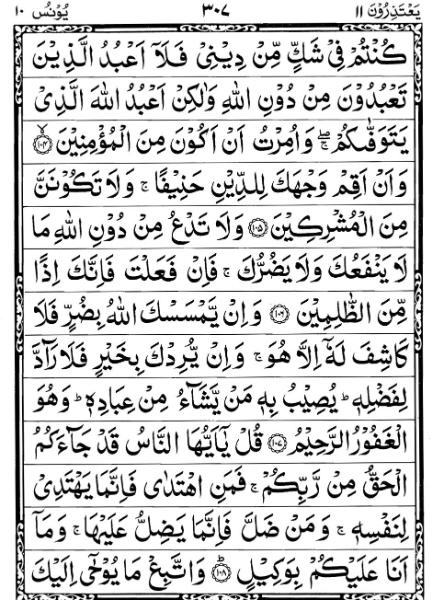 يَعْتَذِرُوْنَ ١١ ٣٠٧ يُوْنُس ١٠
كُنْتُمْ فِيْ شَكٍّ مِّنْ دِيْنِيْ فَلَآ اَعْبُدُ الَّذِيْنَ
تَعْبُدُوْنَ مِنْ دُوْنِ اللّٰهِ وَلٰكِنْ اَعْبُدُ اللّٰهَ الَّذِيْ
يَتَوَفّٰىكُمْ ۖۚ وَاُمِرْتُ اَنْ اَكُوْنَ مِنَ الْمُؤْمِنِيْنَ ۙ﴿١٠٤﴾
وَاَنْ اَقِمْ وَجْهَكَ لِلدِّيْنِ حَنِيْفًا ۚ وَلَا تَكُوْنَنَّ
مِنَ الْمُشْرِكِيْنَ ﴿١٠٥﴾ وَلَا تَدْعُ مِنْ دُوْنِ اللّٰهِ مَا
لَا يَنْفَعُكَ وَلَا يَضُرُّكَ ۚ فَاِنْ فَعَلْتَ فَاِنَّكَ اِذًا
مِّنَ الظّٰلِمِيْنَ ﴿١٠٦﴾ وَاِنْ يَّمْسَسْكَ اللّٰهُ بِضُرٍّ فَلَا
كَاشِفَ لَهٗۤ اِلَّا هُوَ ۚ وَاِنْ يُّرِدْكَ بِخَيْرٍ فَلَا رَآدَّ
لِفَضْلِهٖ ؕ يُصِيْبُ بِهٖ مَنْ يَّشَآءُ مِنْ عِبَادِهٖ ؕ وَهُوَ
الْغَفُوْرُ الرَّحِيْمُ ﴿١٠٧﴾ قُلْ يٰۤاَيُّهَا النَّاسُ قَدْ جَآءَكُمُ
الْحَقُّ مِنْ رَّبِّكُمْ ۚ فَمَنِ اهْتَدٰى فَاِنَّمَا يَهْتَدِيْ
لِنَفْسِهٖ ۚ وَمَنْ ضَلَّ فَاِنَّمَا يَضِلُّ عَلَيْهَا ۚ وَمَاۤ
اَنَا عَلَيْكُمْ بِوَكِيْلٍ ؕ﴿١٠٨﴾ وَاتَّبِعْ مَا يُوْحٰۤى اِلَيْكَ